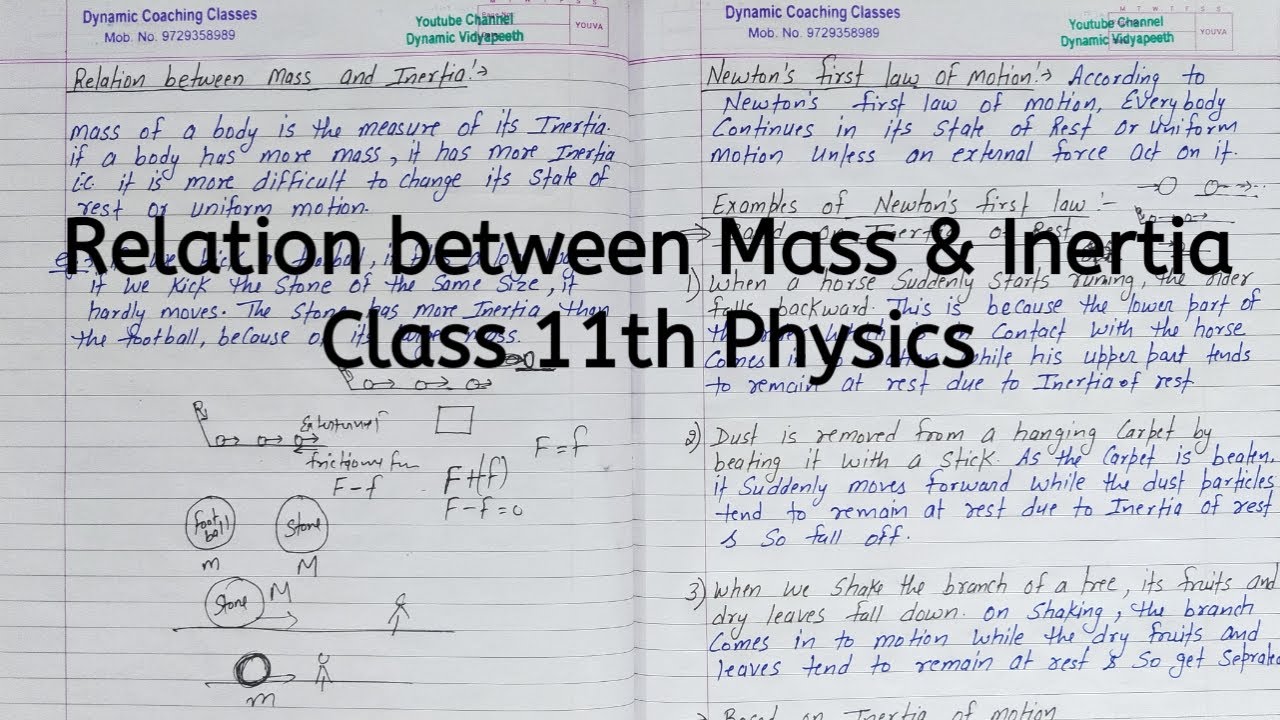 Dynamic Coaching Classes
Mob. No. 9729358989
Youtube Channel
Dynamic Vidyapeeth
YOUVA
Relation between Mass and Inertia:→
mass of a body is the measure of its Inertia.
if a body has more mass, it has more Inertia
i.e. it is more difficult to change its state of
rest or uniform motion.
Relation between Mass & Inertia
Class 11th Physics
if we kick the stone of the same size, it
hardly moves. The stone has more Inertia than
the football, because of its mass.
External
F-f
F+(f)
F-f=0
F=f
Foot
ball
m
Stone
M
Stone
M
m
Dynamic Coaching Classes
Mob. No. 9729358989
Youtube Channel
Dynamic Vidyapeeth
M T W T F S S
YOUVA
Newton's first law of motion:→ According to
Newton's first law of motion, Everybody
Continues in its state of Rest or uniform
motion unless an external force act on it.
Examples of Newton's first law:-
on Inertia of Rest
1) When a horse Suddenly starts running, the rider
falls backward. This is because the lower part of
Contact with the horse
while his upper part tends
to remain at rest due to Inertia of rest
2) Dust is removed from a hanging Carpet by
beating it with a stick. As the Carpet is beaten,
it Suddenly moves forward while the dust particles
tend to remain at rest due to Inertia of rest
& So fall off.
3) When we shake the branch of a tree, its fruits and
dry leaves fall down. on shaking, the branch
Comes in to motion while the dry fruits and
leaves tend to remain at rest & So get Seprated
Based on Inertia of motion